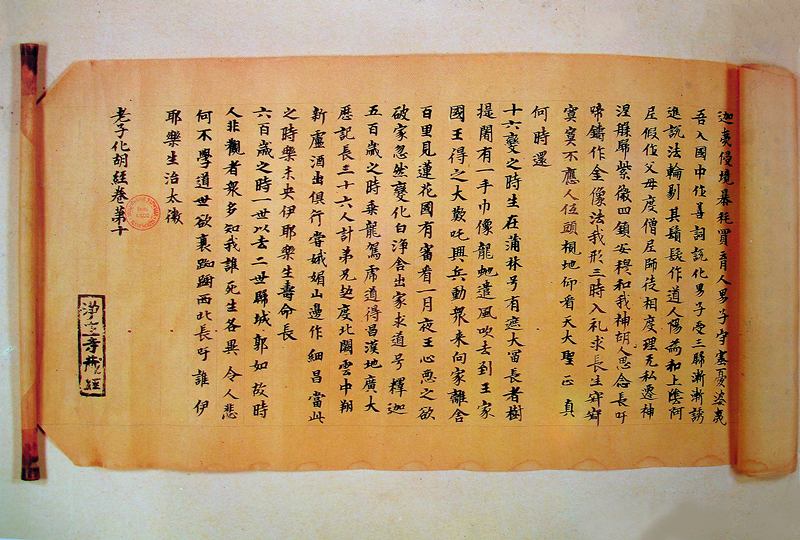 迦夷侵境暴耗買育人男子守塞憂婆夷
吾入國中作善詞說化男子受三歸漸漸誘
進說法輪剔其鬚髮作道人陽為和上陰阿
尼假作父母度僧尼師徒相度理无私遷神
涅槃歸紫微四鎮安穆和我神胡人思念長吁
啼鑄作金像法我形三時入礼求長生穽穽
寞寞不應人伍頭視地仰看天大聖正真
何時還
十六變之時生在蒲林号有遮大富長者樹
提闍有一手巾像龍虵遣風吹去到王家
國王得之大歎吒興兵動衆来向家離舍
百里見蓮花國有審看一月夜王心惡之欲
破家忽然變化白净舍出家求道号釋迦
五百歲之時乘龍駕席道得昌漢地廣大
歷記長三十六人計弟兄過度北闕雲中翔
新盧酒出俱行當娥媚山邊作細昌當此
之時樂未央伊耶樂生壽命長
六百歲之時一世以去二世歸城郭如故時
人非觀者衆多知我誰死生各異令人悲
何不學道世欲衰踟蹰西北長吁誰伊
耶樂生治太微
老子化胡經卷第十
淨土寺藏經